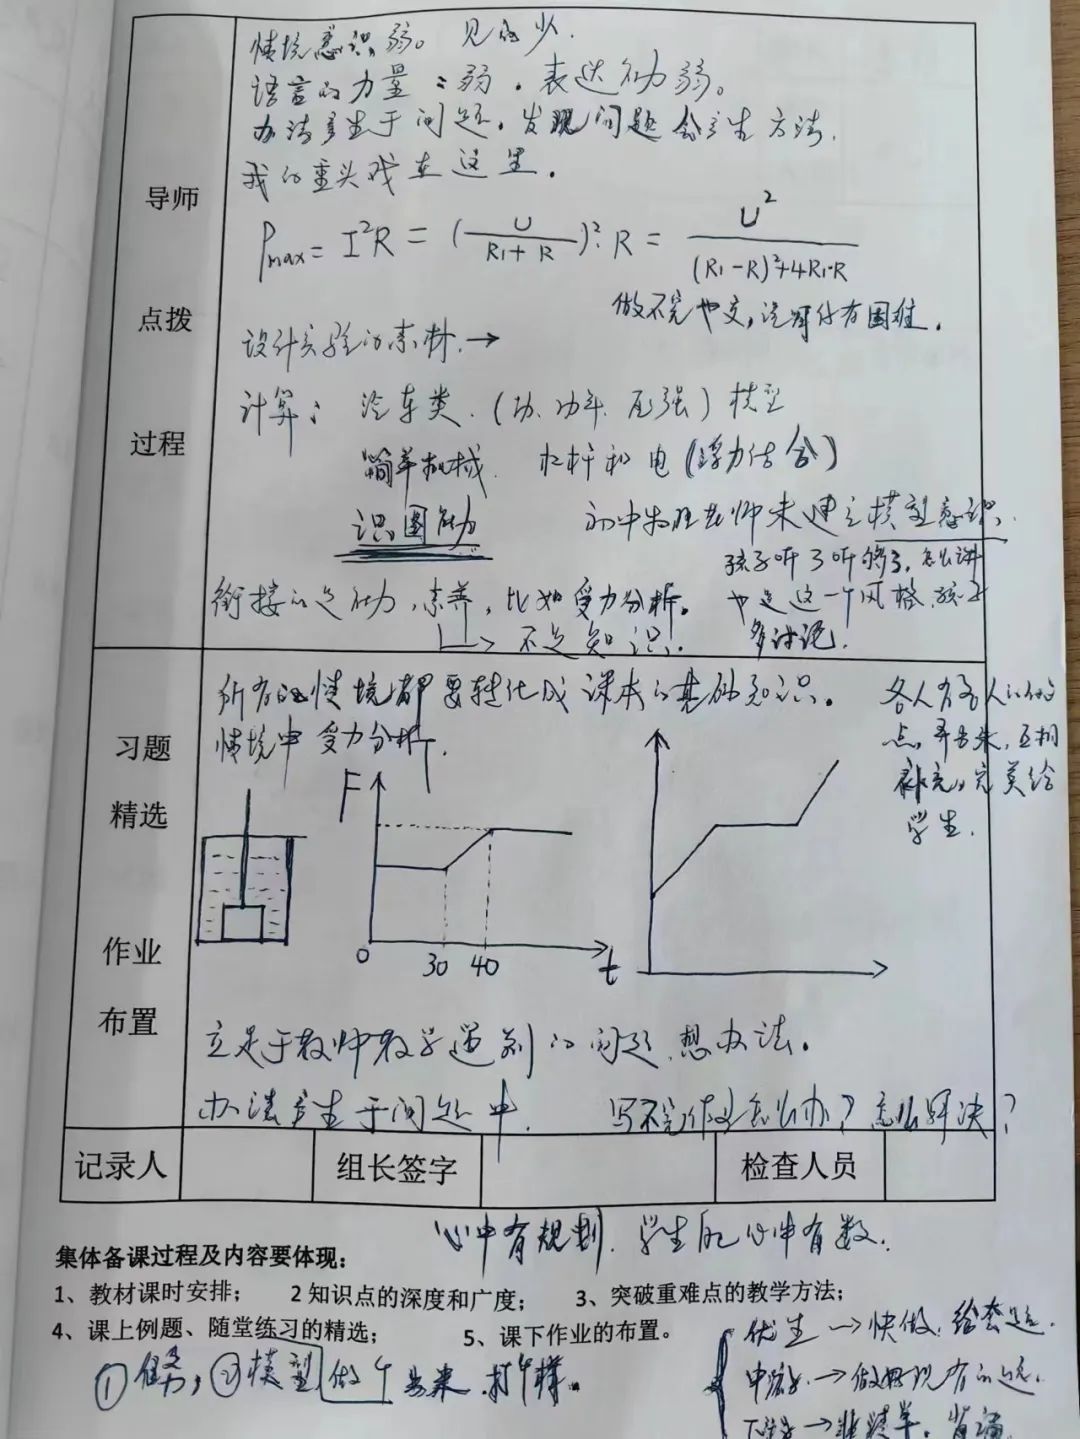 情境意识弱。见的少.
语言的力量：弱。表达能力弱。
办法产生于问题。发现问题会产生方法.
我的重头戏在这里。
导师
点拨
过程
Pmax = I²R = (U/(R1+R))²·R = U²/((R1-R)²+4R1·R)
做不完也交,注解仔有困难.
设计实验的素材.→
计算: 汽车类.(功、功率、压强)模型
简单机械. 杠杆和电(浮力结合)
识图能力 初中物理老师来建立模型意识.
孩子听了听够了,怎么讲
衔接的是能力,素养,比如受力分析。 也是这一个风格.孩子
↳ 不是知识. 多讨论.
所有的情境都要转化成课本的基础知识。 各人有各人的
情境中受力分析. 点,弄出来,互相
补充,完美给
学生.
习题
精选
作业
布置
F
0 30 40 t
立足于教师教学遇到的问题,想办法。
办法产生于问题中. 写不完作业怎么办?怎么解决?
记录人 组长签字 检查人员
心中有规划.学生的心中有数.
集体备课过程及内容要体现：
1、教材课时安排； 2 知识点的深度和广度； 3、突破重难点的教学方法；
4、课上例题、随堂练习的精选； 5、课下作业的布置。
优生→快做,给套题.
①任务,②模型 做个出来.打个样。
→做好现有的题.